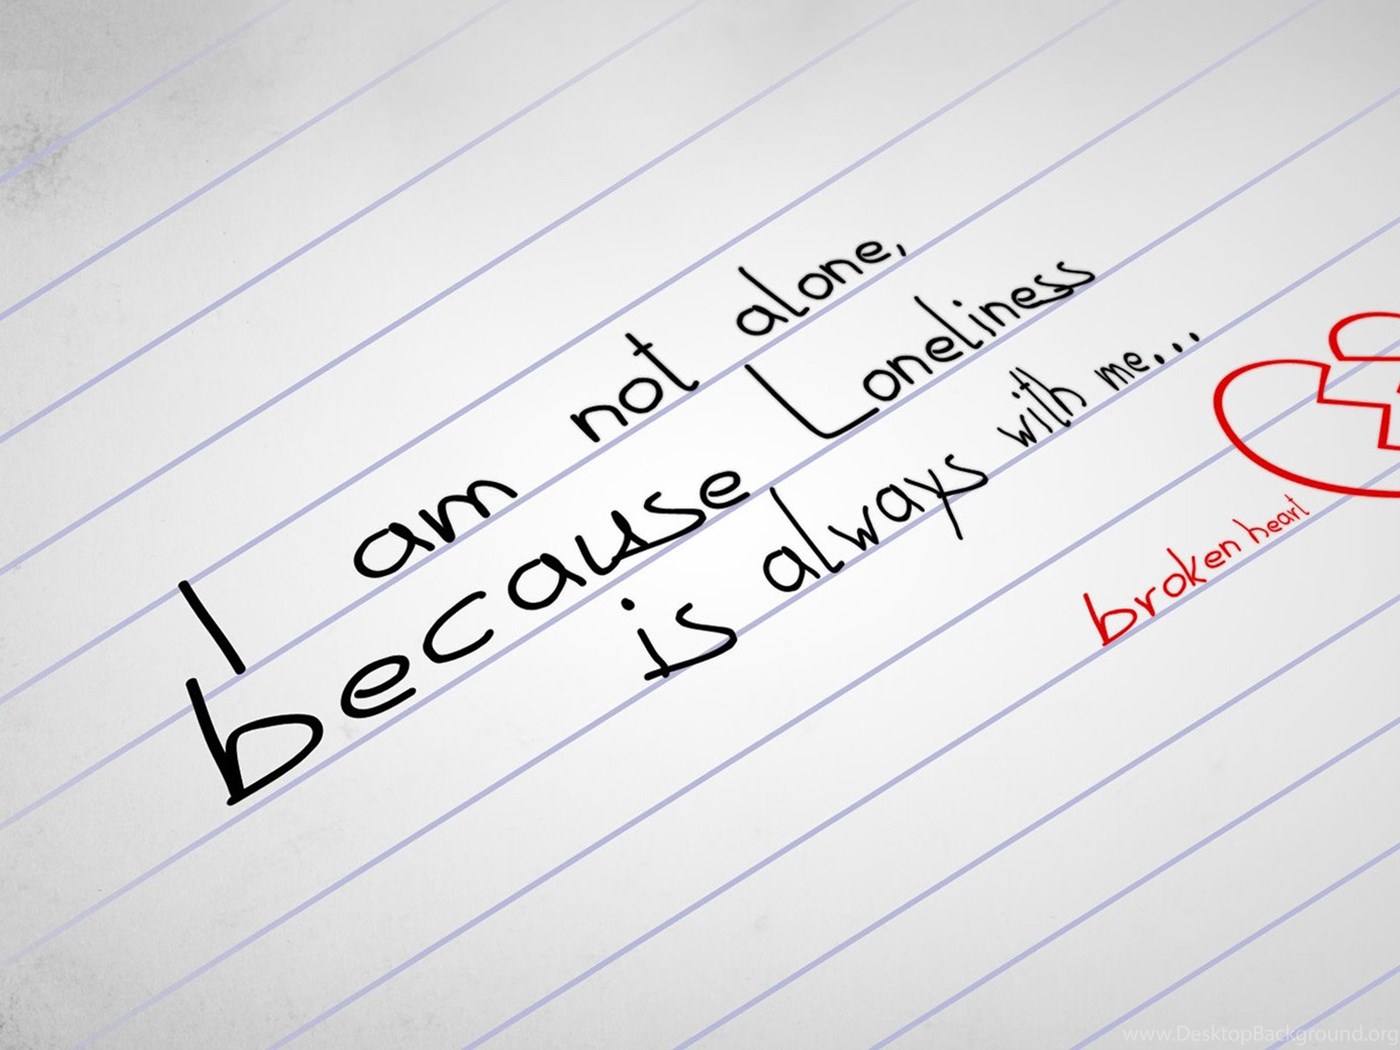 I am not alone,
because Loneliness
is always with me...
broken heart
www.DesktopBackground.org